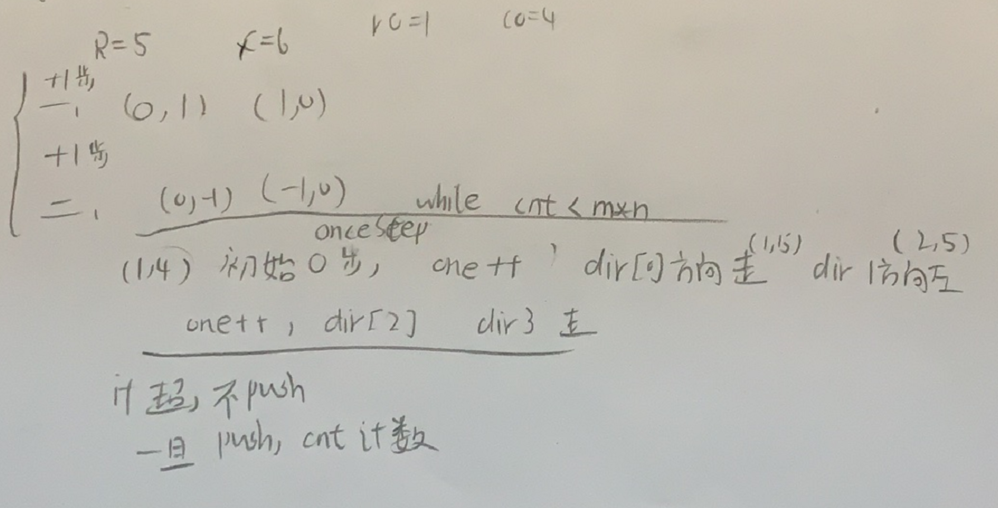 R=5 C=6 r0=1 c0=4
+1步
一、 (0,1) (1,0)
+1步
二、 (0,-1) (-1,0) while cnt<m×n
onceStep
(1,4) 初始0步, one++, dir[0]方向走(1,5) dir 1方向走(2,5)
one++, dir[2] dir3走
if 超, 不push
一旦 push, cnt计数